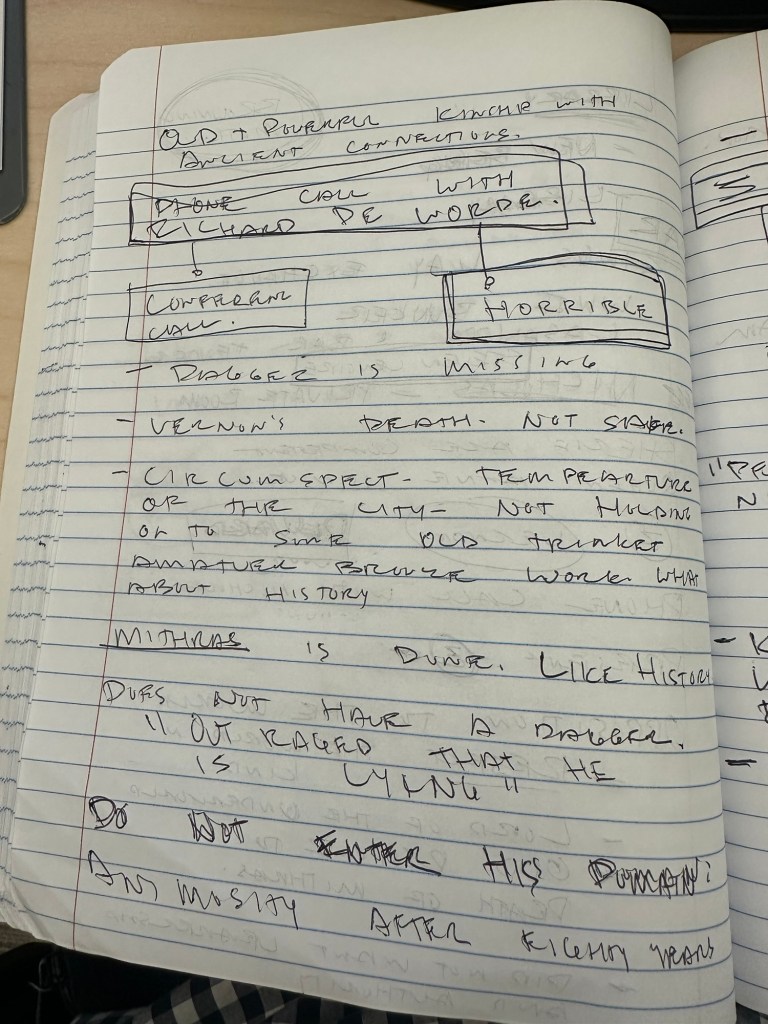 OLD + POWERFUL KINDRED WITH
ANCIENT CONNECTIONS.
PHONE CALL WITH
RICHARD DE WORDE.
CONFERENCE
CALL.
HORRIBLE
- DAGGER IS MISSING
- VERNON'S DEATH. NOT
- CIRCUMSPECT - TEMPEARTURE
OF THE CITY - NOT HOLDING
ON TO SOME OLD TRINKET
AMATUER BRONZE WORK. WHAT
ABOUT HISTORY
MITHRAS IS DONE. LIKE HISTORY
DOES NOT HAVE A DAGGER.
"OUTRAGED THAT HE
IS LYING"
DO NOT ENTER HIS DOMAIN:
ANIMOSITY AFTER EIGHTY YEARS